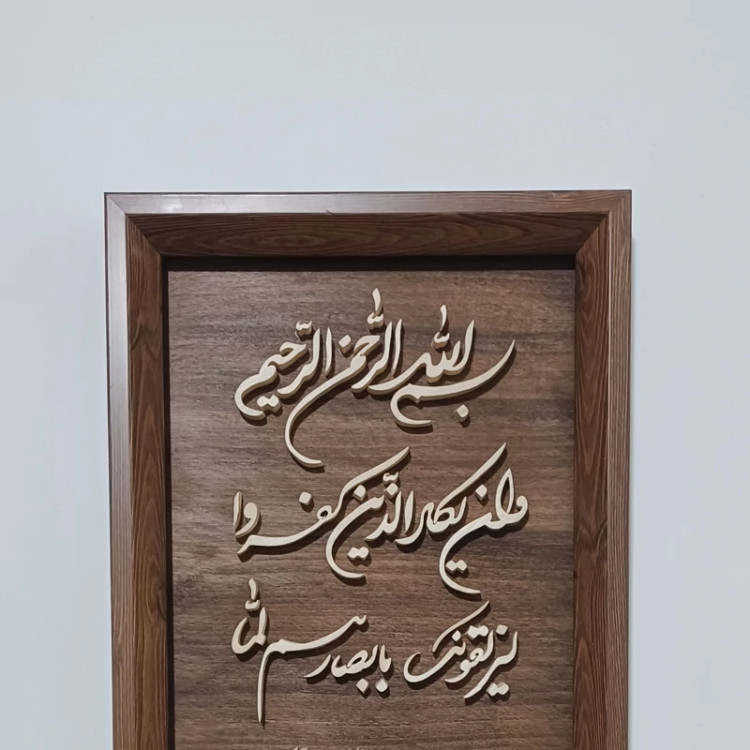 بسم الله الرحمن الرحیم
وان یکاد الذین کفروا
لیزلقونک بابصارهم لما